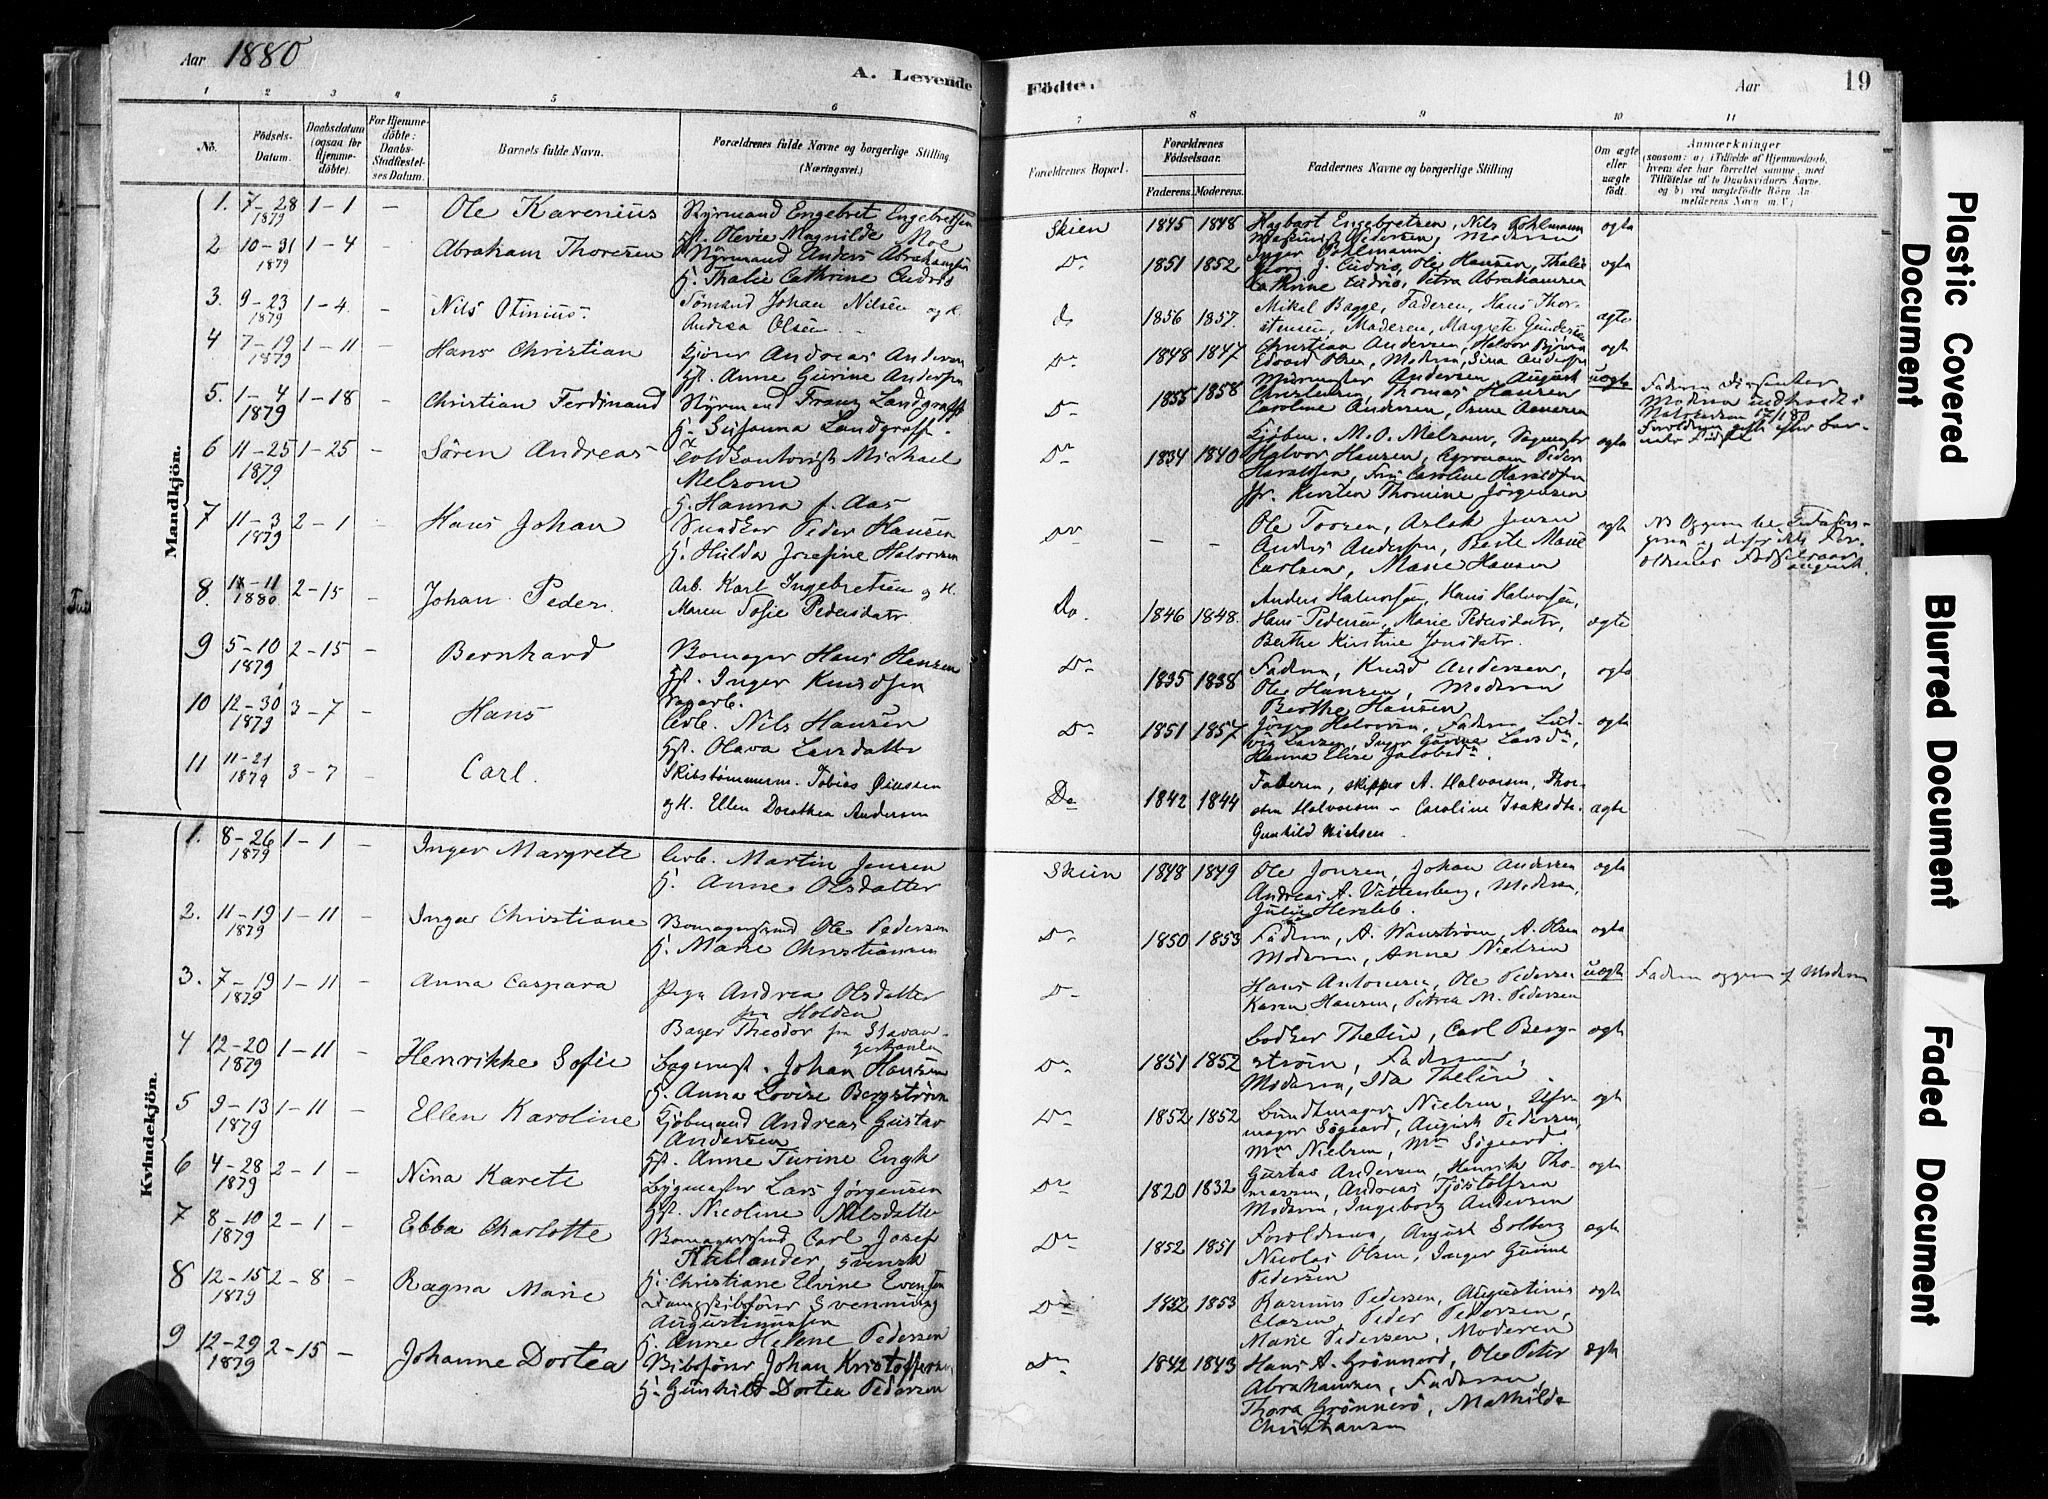 Aar 1880
A. Levende
Födte.
Aar
19
1 2 3 4 5 6 7 8 9 10 11
No.
Födsels-Datum.
Daabsdatum (ogsaa for Hjemmedöbte).
For Hjemmedöbte: Daabs-Stadfæstelses Datum.
Barnets fulde Navn.
Forældrenes fulde Navne og borgerlige Stilling (Næringsvei.)
Forældrenes Bopæl.
Forældrenes Födselsaar.
Faderens. Moderens.
Faddernes Navne og borgerlige Stilling
Om ægte eller uægte födt.
Anmærkninger
(saasom: a) i Tilfælde af Hjemmedaab, hvem der har forrettet samme, med Tilföielse af to Daabsvidners Navne, og b) ved uægtefödte Börn Anmelderens Navn m. V.)
Mandkjön.
1. 7-28 1879 1-1 - Ole Karenius Styrmand Engebret Engebretsen
Hst. Olevie Magnilde Moe
Skien 1845 1848 Hagbart Engebretsen, Nils Pohlmann
Moderen
Inger Pohlmann ægte
2. 10-31 1879 1-4 - Abraham Thoresen Styrmand Anders Abrahamsen
H. Thalie Cathrine Endris
Do 1851 1852 Georg J. Endris, Ole Hansen, Thalie
Cathrine Endris, Petra Abrahamsen ægte
3. 9-23 1879 1-4 - Nils Otinius. Sömand Johan Nilsen og H.
Andrea Olsen
Do 1856 1857. Mikal Bagge, Faderen, Hans Thorstensen, Moderen, Margrete Gundersen ægte
4 7-19 1879 1-11 - Hans Christian Kjörer Andreas Andersen
Hst. Anne Gurine Andersen
Do 1848 1847 Christian Andersen, Halvor Björnsen
Edvard Olsen, Moderen, Sina Andersen ægte
5. 1-4 1879 1-18 - Christian Ferdinand Styrmand Franz Landgraff
H. Susanna Landgraff.
Do 1855 1858 Murmester Andersen, August
Christensen, Thomas Hansen
Caroline Andersen uægte
Faderen Dissenter
Moderen
6 11-25 1879 1-25 - Sören Andreas Toldkontorist Michael
Melsom
H. Hanna f. Aas
Do 1834 1840 Kjöbm. M. O. Melsom, Sagmester
Halvor Hansen, Agronom Peder
Haraldsen, Fru Caroline Haraldsen
Jfr. Kirsten Thomine Jörgensen ægte
7 11-3 1879 2-1 Hans Johan Snedker Peder Hansen
H. Hulda Josefine Halvorsen
Do - - Ole Torsen, Aslak Jensen
Anders Andersen, Berte Marie
Carlsen, Marie Hansen ægte
8. 1880 2-15 - Johan Peder. Arb. Karl Ingebretsen og H.
Maren Sofie Pedersdatr.
Do. 1846 1848. Anders Halvorsen, Hans Halvorsen,
Hans Pedersen, Marie Pedersdatr,
Berthe Kirstine Jonsdatr. ægte
9 5-10 1879 2-15 - Bernhard Bomager Hans Hansen
Hst. Inger Knudsen
Do 1835 1838 Faderen, Knud Andersen,
Ole Hansen, Moderen
Berthe Hansen ægte
10 12-30 1879 3-7 - Hans Sagarb.
Arb. Nils Hansen
Hst. Olava Larsdatter
Do 1851 1857 Jörgen Halvorsen, Faderen, Ludvig Larsen, Inger Gurine Larsdn,
Hanna Elise Jacobsdn. ægte
11 11-21 1879 3-7 - Carl. Skibstömmerm. Tobias
og H. Ellen Dorothea Andersen
Do 1842 1844 Faderen, skipper A. Halvorsen, Thorsten Halvorsen - Caroline Isaksdtr
Gunhild Nielsen. ægte
Kvindekjön.
1. 8-26 1879 1-1 - Inger Margrete Arb. Martin Jensen
H. Anne Olsdatter
Skien 1848 1849 Ole Jonsen, Johan Andersen
Andreas A. Vattenberg, Moderen,
Julie Hersleb. ægte
2. 11-19 1879 1-11 - Inga Christiane Bomagersvend Ole Pedersen
H. Marie Christiansen
Do 1850 1853 Faderen, A. Wanström, A. Olsen
Moderen, Anne Nielsen ægte
3. 7-19 1879 1-11 - Anna Caspara Pige Andrea Olsdatter
fra Holden
Bager Theodor fra Stavangerkanten
Do Hans Antonsen, Ole Pedersen
Karen Hansen, Petrea M. Pedersen uægte
Faderen opgiven af Moderen
4 12-20 1879 1-11 - Henrikke Sofie Bagmest. Johan Hansen
H. Anna Lovise Bergström
Do 1851 1852 Bödker Thelin, Carl Bergström, Faderen,
Moderen, Ida Thelin ægte
5 9-13 1879 1-11 - Ellen Karoline Kjöbmand Andreas Gustav
Andersen
Hst. Anne Turine Engh
Do 1852 1852 Bundtmager Nielsen, Uhrmager Sögaard, August Pedersen,
Md Nielsen, Md Sögaard ægte
6 4-28 1879 2-1 - Nina Karete Bygmester Lars Jörgensen
Hst. Nicoline Nilsdatter
Do 1820 1832 Gustav Andersen, Henrik Thomassen, Andreas Tjöstolfsen
Moderen, Ingeborg Andersen ægte
7 8-10 1879 2-1 - Ebba Charlotte Bomagersvend Carl Josef
Hallander, svensk
H. Christiane Elvine Evensen
Do 1852 1851 Forældrene, August Solberg
Nicolai Olsen, Inger Gurine
Pedersen ægte
8 12-15 1879 2-8 - Ragna Marie Dampskibsförer Svenning
Augustinussen
H. Anne Helene Pedersen
Do 1852 1853 Rasmus Pedersen, Augustinus
Clasen Peder Pedersen,
Marie Pedersen, Moderen ægte
9 12-29 1879 2-15 - Johanne Dortea Skibsförer Johan Kristoffersen
H. Gunhild Dortea Pedersen
Do 1842 1843 Hans A. Grönnerö, Ole Peter
Abrahamsen, Faderen,
Thora Grönnerö, Mathilde
Christiansen ægte
Plastic Covered Document
Blurred Document
Faded Document